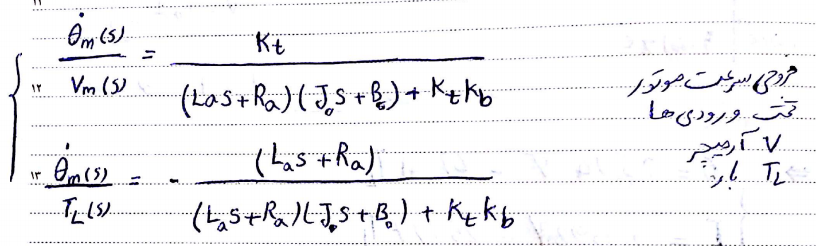 θ̇m(s) / Vm(s) = Kt / ((Las+Ra)(J₀s+B₀)+KtKb)
۱۲
θ̇m(s) / TL(s) = - (Las+Ra) / ((Las+Ra)(J₀s+B₀)+KtKb)
۱۳
خروجی سرعت موتور
تحت ورودی ها
V آرمیچر
TL بار